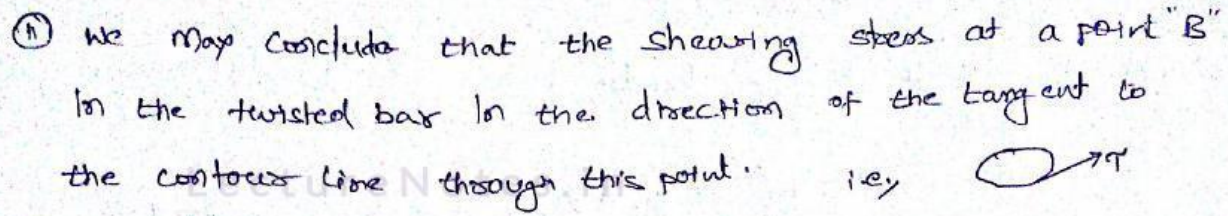 (h) We may conclude that the shearing stress at a point "B"
In the twisted bar In the direction of the tangent to
the contour line through this point. i.e, τ